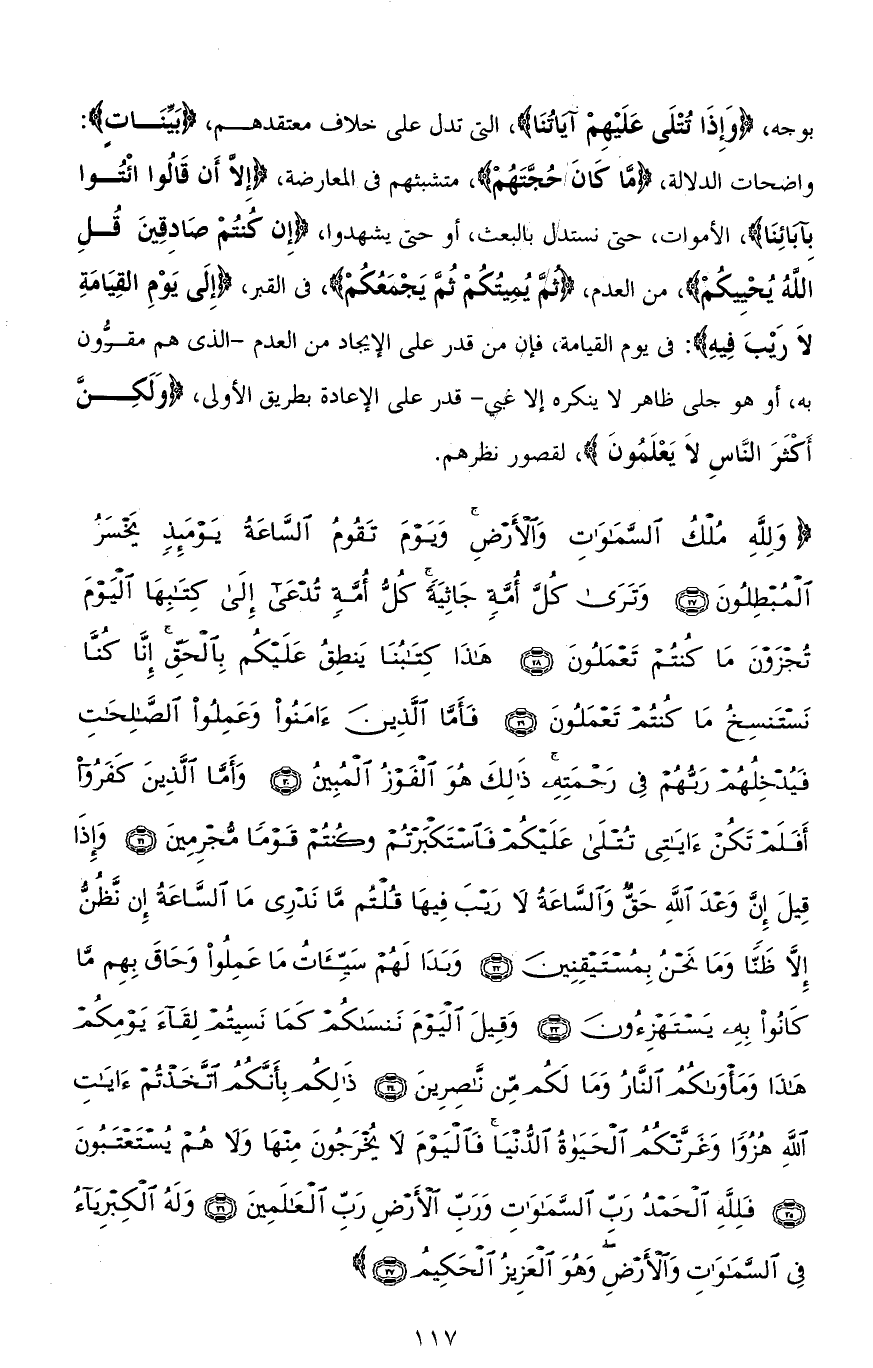 بوجه، ﴿وَإِذَا تُتْلَى عَلَيْهِمْ آيَاتُنَا﴾، التى تدل على خلاف معتقدهم، ﴿بَيِّنَاتٍ﴾:
واضحات الدلالة، ﴿مَّا كَانَ حُجَّتَهُمْ﴾، متشبثهم فى المعارضة، ﴿إِلاَّ أَن قَالُوا ائْتُوا
بِآبَائِنَا﴾، الأموات، حتى نستدل بالبعث، أو حتى يشهدوا، ﴿إِن كُنتُمْ صَادِقِينَ قُلِ
اللَّهُ يُحْيِيكُمْ﴾، من العدم، ﴿ثُمَّ يُمِيتُكُمْ ثُمَّ يَجْمَعُكُمْ﴾، فى القبر، ﴿إِلَى يَوْمِ القِيَامَةِ
لاَ رَيْبَ فِيهِ﴾: فى يوم القيامة، فإن من قدر على الإيجاد من العدم –الذى هم مقرُّون
به، أو هو جلى ظاهر لا ينكره إلا غبي– قدر على الإعادة بطريق الأولى، ﴿وَلَكِنَّ
أَكْثَرَ النَّاسِ لاَ يَعْلَمُونَ ﴾، لقصور نظرهم.
﴿ وَلِلَّهِ مُلْكُ ٱلسَّمَـٰوَٰتِ وَٱلْأَرْضِ ۚ وَيَوْمَ تَقُومُ ٱلسَّاعَةُ يَوْمَئِذٍ يَخْسَرُ
ٱلْمُبْطِلُونَ ٢٧ وَتَرَىٰ كُلَّ أُمَّةٍ جَاثِيَةً ۚ كُلُّ أُمَّةٍ تُدْعَىٰٓ إِلَىٰ كِتَـٰبِهَا ٱلْيَوْمَ
تُجْزَوْنَ مَا كُنتُمْ تَعْمَلُونَ ٢٨ هَـٰذَا كِتَـٰبُنَا يَنطِقُ عَلَيْكُم بِٱلْحَقِّ ۚ إِنَّا كُنَّا
نَسْتَنسِخُ مَا كُنتُمْ تَعْمَلُونَ ٢٩ فَأَمَّا ٱلَّذِينَ ءَامَنُوا۟ وَعَمِلُوا۟ ٱلصَّـٰلِحَـٰتِ
فَيُدْخِلُهُمْ رَبُّهُمْ فِى رَحْمَتِهِۦ ۚ ذَٰلِكَ هُوَ ٱلْفَوْزُ ٱلْمُبِينُ ٣٠ وَأَمَّا ٱلَّذِينَ كَفَرُوٓا۟
أَفَلَمْ تَكُنْ ءَايَـٰتِى تُتْلَىٰ عَلَيْكُمْ فَٱسْتَكْبَرْتُمْ وَكُنتُمْ قَوْمًا مُّجْرِمِينَ ٣١ وَإِذَا
قِيلَ إِنَّ وَعْدَ ٱللَّهِ حَقٌّ وَٱلسَّاعَةُ لَا رَيْبَ فِيهَا قُلْتُم مَّا نَدْرِى مَا ٱلسَّاعَةُ إِن نَّظُنُّ
إِلَّا ظَنًّا وَمَا نَحْنُ بِمُسْتَيْقِنِينَ ٣٢ وَبَدَا لَهُمْ سَيِّـَٔاتُ مَا عَمِلُوا۟ وَحَاقَ بِهِم مَّا
كَانُوا۟ بِهِۦ يَسْتَهْزِءُونَ ٣٣ وَقِيلَ ٱلْيَوْمَ نَنسَىٰكُمْ كَمَا نَسِيتُمْ لِقَآءَ يَوْمِكُمْ
هَـٰذَا وَمَأْوَىٰكُمُ ٱلنَّارُ وَمَا لَكُم مِّن نَّـٰصِرِينَ ٣٤ ذَٰلِكُم بِأَنَّكُمُ ٱتَّخَذْتُمْ ءَايَـٰتِ
ٱللَّهِ هُزُوًا وَغَرَّتْكُمُ ٱلْحَيَوٰةُ ٱلدُّنْيَا ۚ فَٱلْيَوْمَ لَا يُخْرَجُونَ مِنْهَا وَلَا هُمْ يُسْتَعْتَبُونَ
٣٥ فَلِلَّهِ ٱلْحَمْدُ رَبِّ ٱلسَّمَـٰوَٰتِ وَرَبِّ ٱلْأَرْضِ رَبِّ ٱلْعَـٰلَمِينَ ٣٦ وَلَهُ ٱلْكِبْرِيَآءُ
فِى ٱلسَّمَـٰوَٰتِ وَٱلْأَرْضِ ۖ وَهُوَ ٱلْعَزِيزُ ٱلْحَكِيمُ ٣٧ ﴾
١١٧